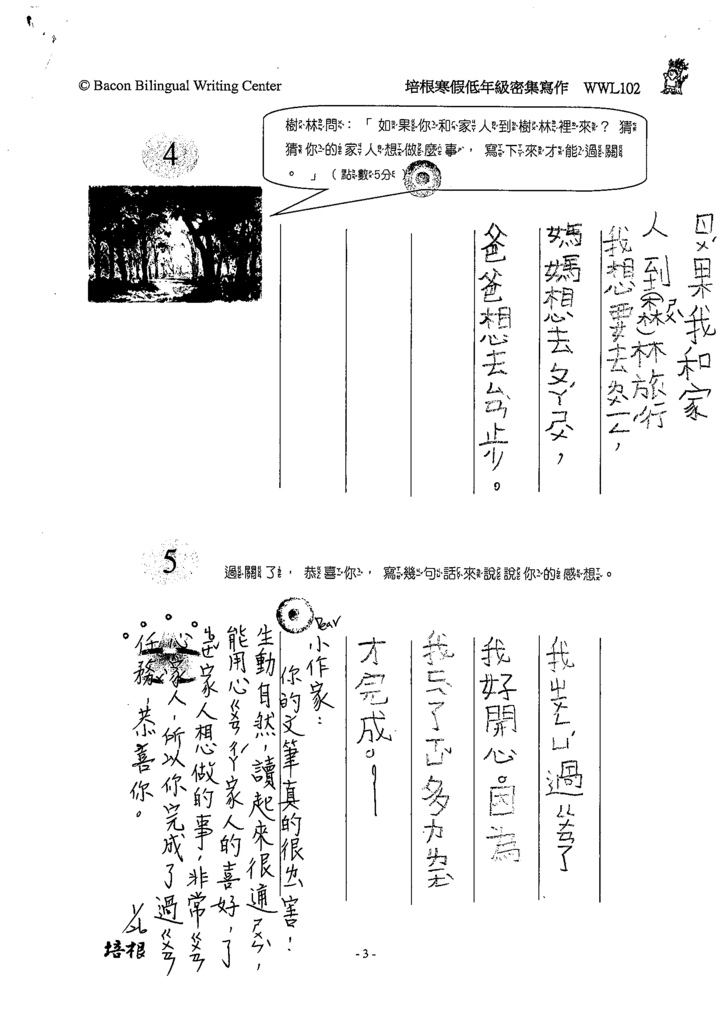 © Bacon Bilingual Writing Center
培根寒假低年級密集寫作 WWL102
4
樹林問：「如果你和家人到樹林裡來？猜
猜你的家人想做麼事，寫下來才能過關
。」（點數5分）
果我和家
人到ㄕㄨˋ林旅行
我想要去
媽媽想去ㄆㄚˊㄕㄢ，
爸爸想去台步。
5
過關了，恭喜你，寫幾句話來說說你的感想。
我ㄓㄨㄥ ㄩˊ過ㄍㄨㄢ了
我好開心。因為
我
才完成。
Dear
小作家：
你的文筆真的很ㄌㄧˋ害！
生動自然，讀起來很通ㄕㄨㄣˋ，
能用心ㄍㄨㄢ ㄔㄚˊ家人的喜好，了
家人想做的事，非常ㄍㄨㄢ
心家人，所以你完成了過ㄍㄨㄢ
任務，恭喜你。
1/26
培根
- 3 -